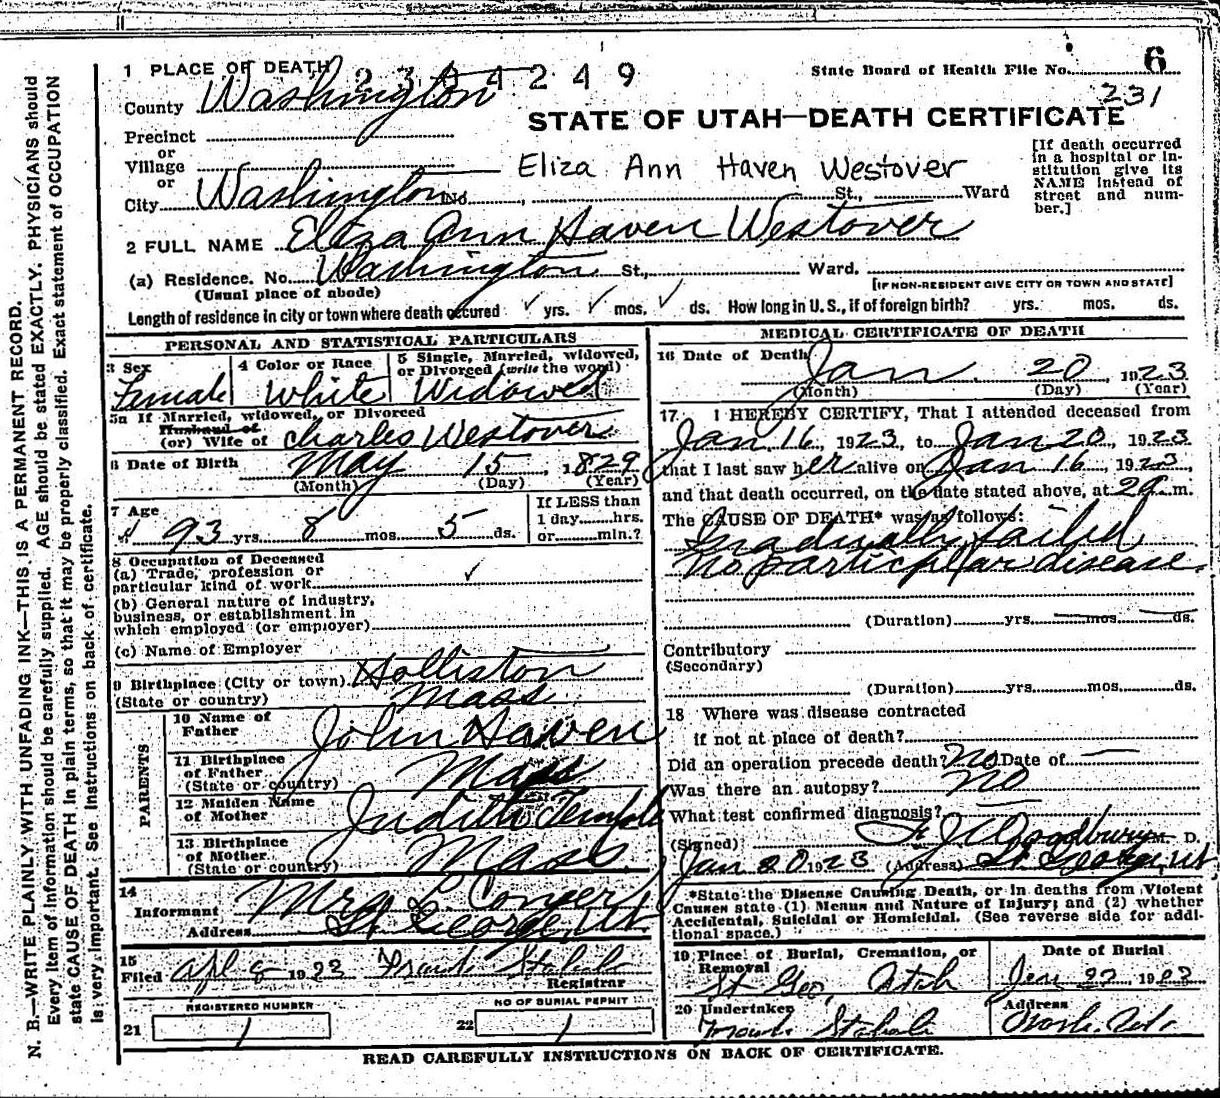 6
1 PLACE OF DEATH 2304249 State Board of Health File No.
231
County Washington
STATE OF UTAH—DEATH CERTIFICATE
Precinct
or
Village
or
Eliza Ann Haven Westover
City Washington No. , St., Ward
[If death occurred in a hospital or institution give its NAME instead of street and number.]
2 FULL NAME Eliza Ann Haven Westover
(a) Residence. No. Washington St., Ward.
(Usual place of abode) [IF NON-RESIDENT GIVE CITY OR TOWN AND STATE]
Length of residence in city or town where death occured ✓ yrs. ✓ mos. ✓ ds. How long in U. S., if of foreign birth? yrs. mos. ds.
PERSONAL AND STATISTICAL PARTICULARS
3 Sex
Female
4 Color or Race
White
5 Single, Married, widowed,
or Divorced (write the word)
Widowed
5a If Married, widowed, or Divorced
Husband of
(or) Wife of Charles Westover
6 Date of Birth May 15, 1829
(Month) (Day) (Year)
7 Age
93 yrs. 8 mos. 5 ds.
If LESS than
1 day......hrs.
or......min.?
8 Occupation of Deceased
(a) Trade, profession or
particular kind of work ✓
(b) General nature of industry,
business, or establishment in
which employed (or employer)
(c) Name of Employer
9 Birthplace (City or town) Holliston
(State or country) Mass
PARENTS
10 Name of
Father John Haven
11 Birthplace
of Father
(State or country) Mass
12 Maiden Name
of Mother Judith Temple
13 Birthplace
of Mother
(State or country) Mass
14
Informant Mrs L. Conger
Address St George, Ut.
15
Filed Apl 8 1923 Frank Registrar
REGISTERED NUMBER
21 1
NO OF BURIAL PERMIT
22 1
MEDICAL CERTIFICATE OF DEATH
16 Date of Death Jan. 20, 1923
(Month) (Day) (Year)
17. I HEREBY CERTIFY, That I attended deceased from
Jan 16, 1923, to Jan 20, 1923
that I last saw her alive on Jan 16, 1923
and that death occurred, on the date stated above, at 2 a.m.
The CAUSE OF DEATH* was as follows:
Gradually failed
no particular disease.
(Duration) yrs. mos. ds.
Contributory
(Secondary)
(Duration) yrs. mos. ds.
18 Where was disease contracted
if not at place of death?
Did an operation precede death? No Date of —
Was there an autopsy? No
What test confirmed diagnosis?
(Signed) F. J. Woodbury M. D.
Jan 20 1923 (Address) St George, Ut
*State the Disease Causing Death, or in deaths from Violent
Causes state (1) Menus and Nature of Injury; and (2) whether
Accidental, Suicidal or Homicidal. (See reverse side for addi-
tional space.)
19 Place of Burial, Cremation, or
Removal
St Geo, Utah
Date of Burial
Jan 22 1923
20 Undertaker
Frank
Address
Wash. Ut.
READ CAREFULLY INSTRUCTIONS ON BACK OF CERTIFICATE.
N. B.—WRITE PLAINLY WITH UNFADING INK—THIS IS A PERMANENT RECORD.
Every item of information should be carefully supplied. AGE should be stated EXACTLY. PHYSICIANS should
state CAUSE OF DEATH in plain terms, so that it may be properly classified. Exact statement of OCCUPATION
is very important. See instructions on back of certificate.